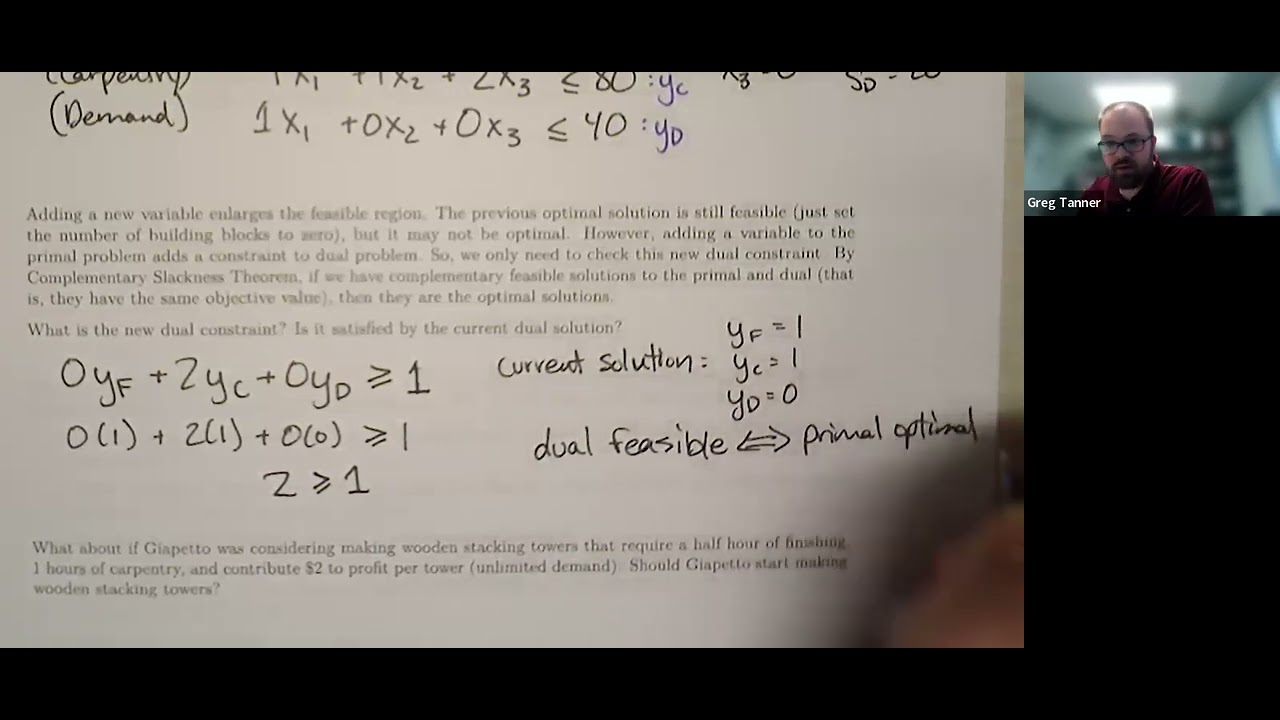 (Carpentry) 1x₁ + 1x₂ + 2x₃ ≤ 80 : y_C
(Demand) 1x₁ + 0x₂ + 0x₃ ≤ 40 : y_D
Greg Tanner
Adding a new variable enlarges the feasible region. The previous optimal solution is still feasible (just set
the number of building blocks to zero), but it may not be optimal. However, adding a variable to the
primal problem adds a constraint to dual problem. So, we only need to check this new dual constraint. By
Complementary Slackness Theorem, if we have complementary feasible solutions to the primal and dual (that
is, they have the same objective value), then they are the optimal solutions.
What is the new dual constraint? Is it satisfied by the current dual solution?
0y_F + 2y_C + 0y_D ≥ 1
0(1) + 2(1) + 0(0) ≥ 1
2 ≥ 1
current solution: y_F = 1
y_C = 1
y_D = 0
dual feasible ⟺ primal optimal
What about if Giapetto was considering making wooden stacking towers that require a half hour of finishing,
1 hours of carpentry, and contribute $2 to profit per tower (unlimited demand). Should Giapetto start making
wooden stacking towers?